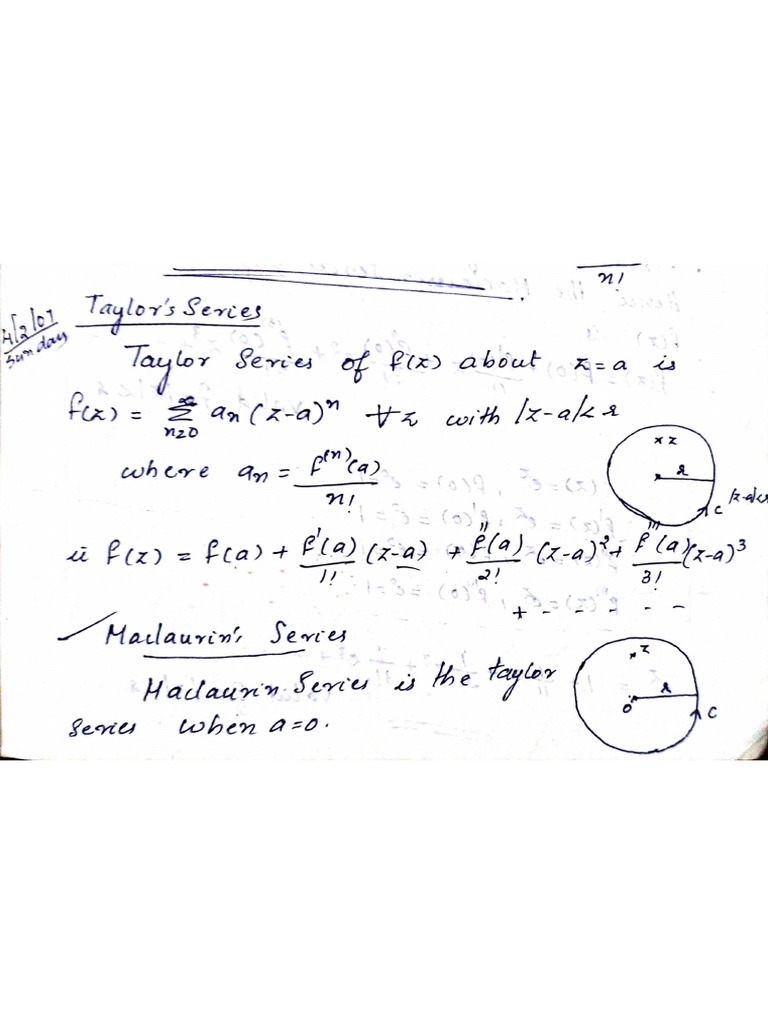 n!
Taylor's Series
4/2/07
Sunday
Taylor Series of f(z) about z=a is
f(z) = ∞ Σ n=0 aₙ (z-a)ⁿ ∀z with |z-a|<r
where aₙ = f⁽ⁿ⁾(a) / n!
z
r
C
|z-a|<r
ie f(z) = f(a) + f'(a)/1! (z-a) + f''(a)/2! (z-a)² + f'''(a)/3! (z-a)³
+ - - - - -
Maclaurin's Series
Maclaurin Series is the taylor
series when a=0.
z
r
0
C